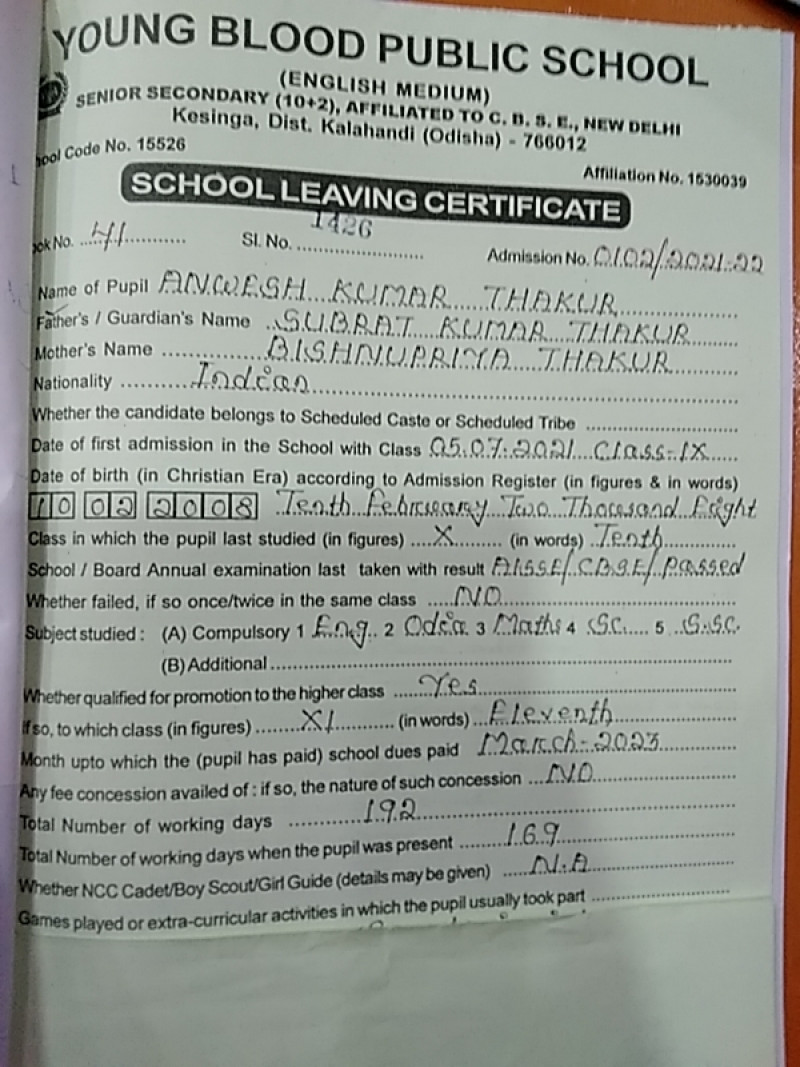 YOUNG BLOOD PUBLIC SCHOOL
(ENGLISH MEDIUM)
SENIOR SECONDARY (10+2), AFFILIATED TO C. B. S. E., NEW DELHI
Kesinga, Dist. Kalahandi (Odisha) - 766012
hool Code No. 15526 Affiliation No. 1530039
SCHOOL LEAVING CERTIFICATE
ok No. 41 Sl. No. 1426 Admission No. 0102/2021-22
Name of Pupil ANWESH KUMAR THAKUR
Father's / Guardian's Name SUBRAT KUMAR THAKUR
Mother's Name BISHNUPRIYA THAKUR
Nationality Indian
Whether the candidate belongs to Scheduled Caste or Scheduled Tribe
Date of first admission in the School with Class 05.07.2021 Class-IX
Date of birth (in Christian Era) according to Admission Register (in figures & in words)
10 02 2008 Tenth February Two Thousand Eight
Class in which the pupil last studied (in figures) X (in words) Tenth
School / Board Annual examination last taken with result AISSE/CBSE/Passed
Whether failed, if so once/twice in the same class NO
Subject studied : (A) Compulsory 1 Eng. 2 Odia 3 Maths 4 Sc. 5 S.Sc.
(B) Additional
Whether qualified for promotion to the higher class Yes
If so, to which class (in figures) XI (in words) Eleventh
Month upto which the (pupil has paid) school dues paid March-2023
Any fee concession availed of : if so, the nature of such concession NO
Total Number of working days 192
Total Number of working days when the pupil was present 169
Whether NCC Cadet/Boy Scout/Girl Guide (details may be given) N.A
Games played or extra-curricular activities in which the pupil usually took part